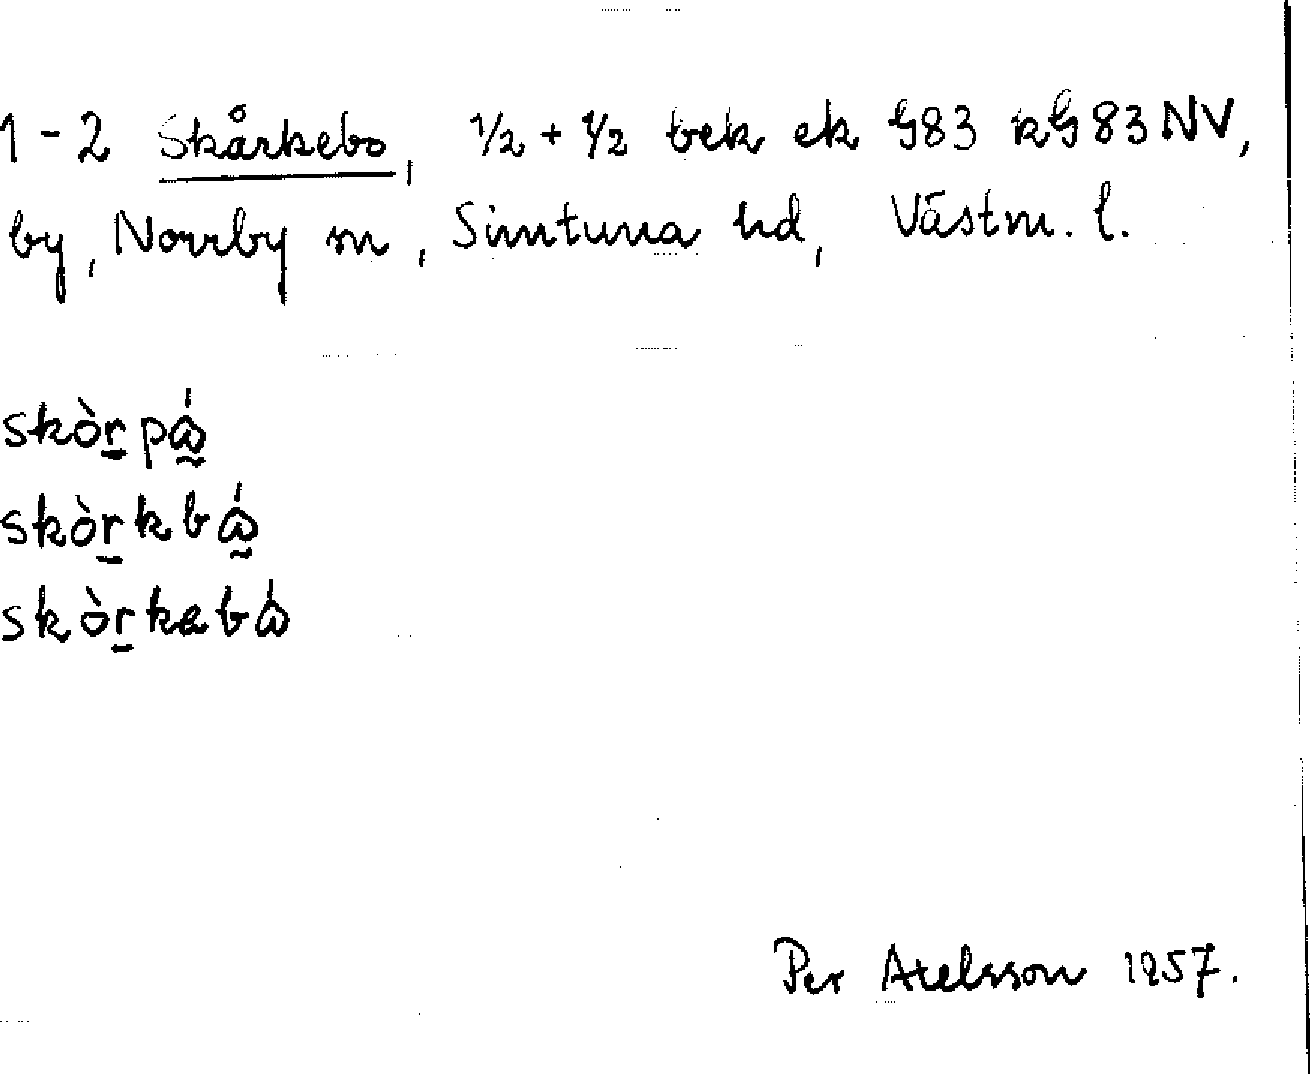 1-2 Skårkebo, 1/2 + 1/2 bek ek G83 kG83NV,
by, Norrby sn, Simtuna hd, Västm. l.
skòrpá
skòrkbá
skòrkabá
Per Axelsson 1957.